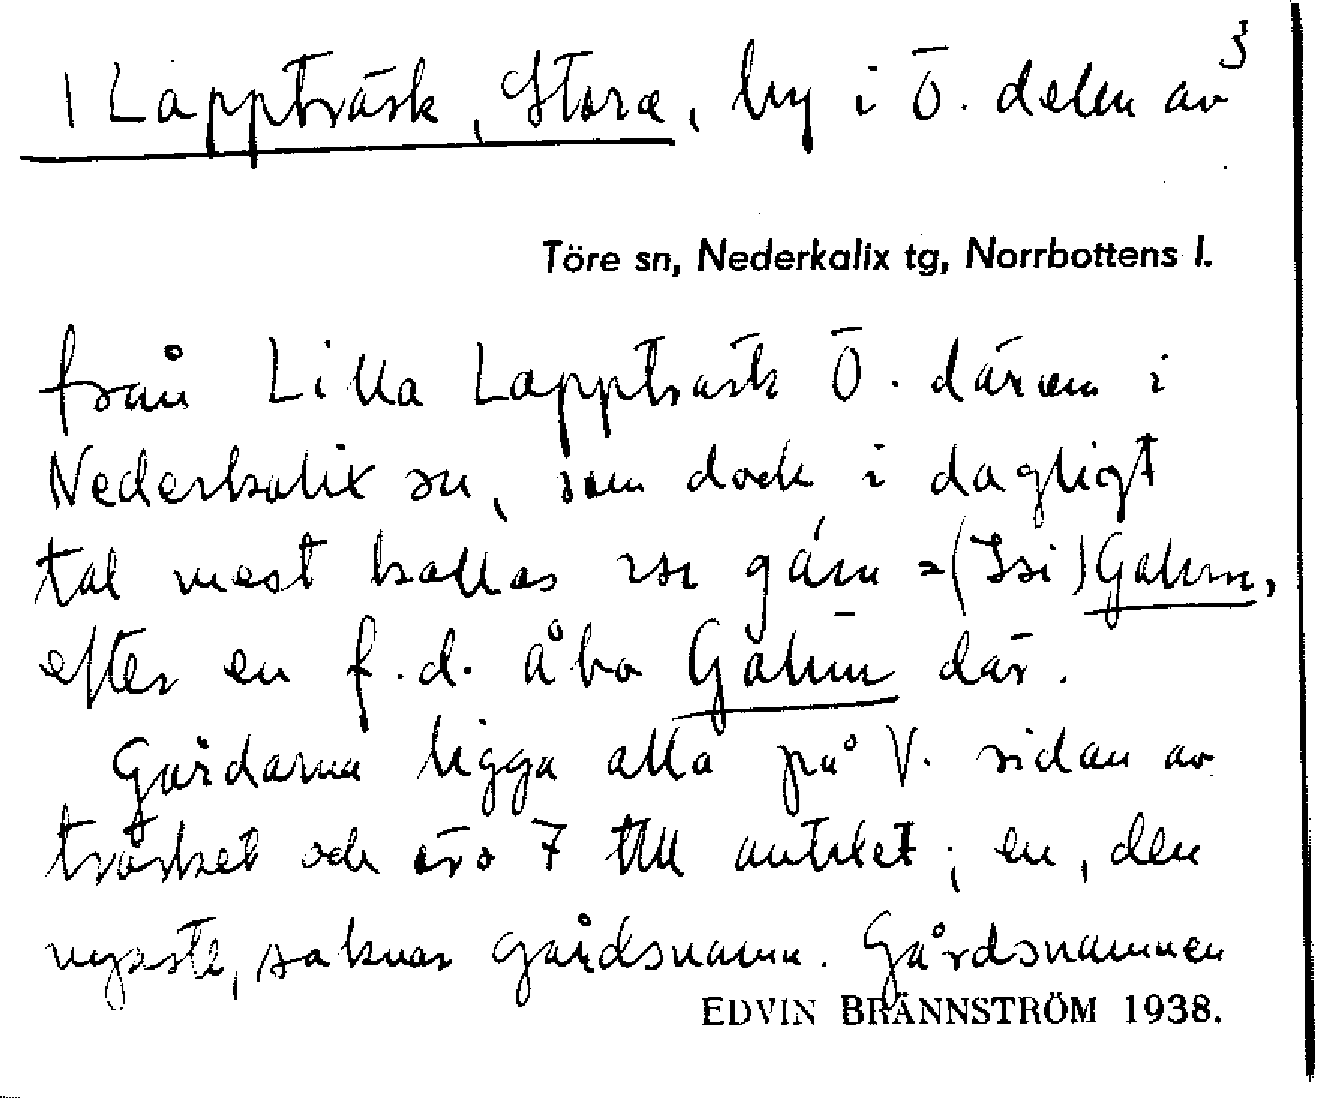 3
1 Lappträsk, Stora, by i Ö. delen av
Töre sn, Nederkalix tg, Norrbottens l.
från Lilla Lappträsk Ö. därom i
Nederkalix sn, som dock i dagligt
tal mest kallas gám =( )Gahm,
efter en f.d. åbo Gahm där.
Gårdarna ligga alla på V. sidan av
träsket och äro 7 till antalet; en, den
nyaste, saknar gårdsnamn. Gårdsnamnen
EDVIN BRÄNNSTRÖM 1938.